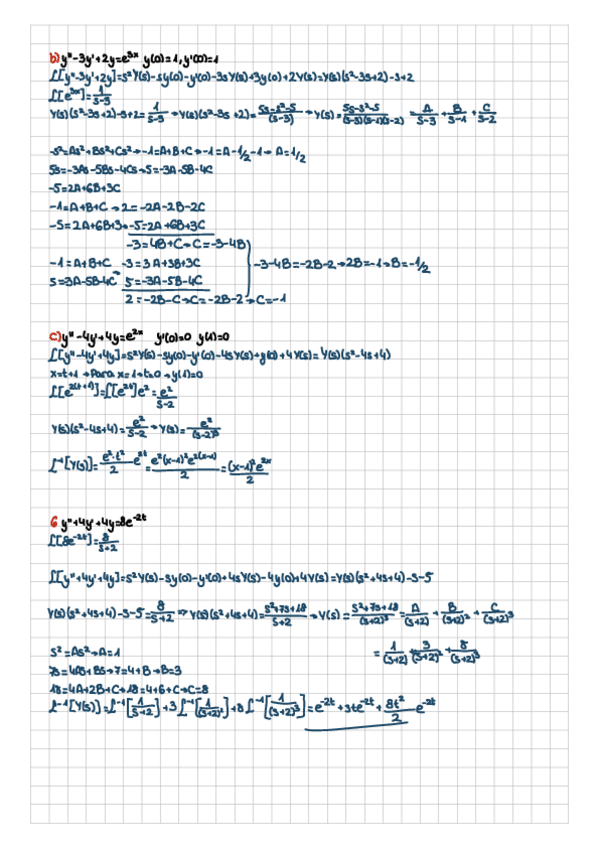 b) y''-3y'+2y=e^3x y(0)=1, y'(0)=1
L[y''-3y'+2y]=s²Y(s)-sy(0)-y'(0)-3sY(s)+3y(0)+2Y(s)=Y(s)(s²-3s+2)-s+2
L[e^3x]=1/(s-3)
Y(s)(s²-3s+2)-s+2=1/(s-3) → Y(s)(s²-3s+2)=(5s-s²-5)/(s-3) → Y(s)=(5s-s²-5)/((s-3)(s-1)(s-2)) = A/(s-3) + B/(s-1) + C/(s-2)
-s²=As²+Bs²+Cs² → -1=A+B+C → -1=A-1/2-1 → A=1/2
5s=-3As-5Bs-4Cs → 5=-3A-5B-4C
-5=2A+6B+3C
-1=A+B+C → 2=-2A-2B-2C
-5=2A+6B+3 → -5=2A+6B+3C
-3=4B+C → C=-3-4B
-1=A+B+C -3=3A+3B+3C -3-4B=-2B-2 → 2B=-1 → B=-1/2
5=3A-5B-4C 5=-3A-5B-4C
2=-2B-C → C=-2B-2 → C=-1
c) y''-4y'+4y=e^2x y'(0)=0 y(1)=0
L[y''-4y'+4y]=s²Y(s)-sy(0)-y'(0)-4sY(s)+y(0)+4Y(s)=Y(s)(s²-4s+4)
x=t+1 → Para x=1 → t=0 → y(1)=0
L[e^2(t+1)]=L[e^2t]e²=e²/(s-2)
Y(s)(s²-4s+4)=e²/(s-2) → Y(s)=e²/(s-2)³
L⁻¹[Y(s)]=(e²·t²)/2 · e^2t = (e²(x-1)²e^2(x-1))/2 = ((x-1)²e^2x)/2
6 y''+4y'+4y=8e^-2t
L[8e^-2t]=8/(s+2)
L[y''+4y'+4y]=s²Y(s)-sy(0)-y'(0)+4sY(s)-4y(0)+4Y(s)=Y(s)(s²+4s+4)-s-5
Y(s)(s²+4s+4)-s-5=8/(s+2) → Y(s)(s²+4s+4)=(s²+7s+18)/(s+2) → Y(s)=(s²+7s+18)/(s+2)³=A/(s+2)+B/(s+2)²+C/(s+2)³
s²=As² → A=1 =1/(s+2)+3/(s+2)²+8/(s+2)³
7s=4As+Bs → 7=4+B → B=3
18=4A+2B+C → 18=4+6+C → C=8
L⁻¹[Y(s)]=L⁻¹[1/(s+2)]+3L⁻¹[1/(s+2)²]+8L⁻¹[1/(s+2)³]=e^-2t+3te^-2t+(8t²/2)e^-2t